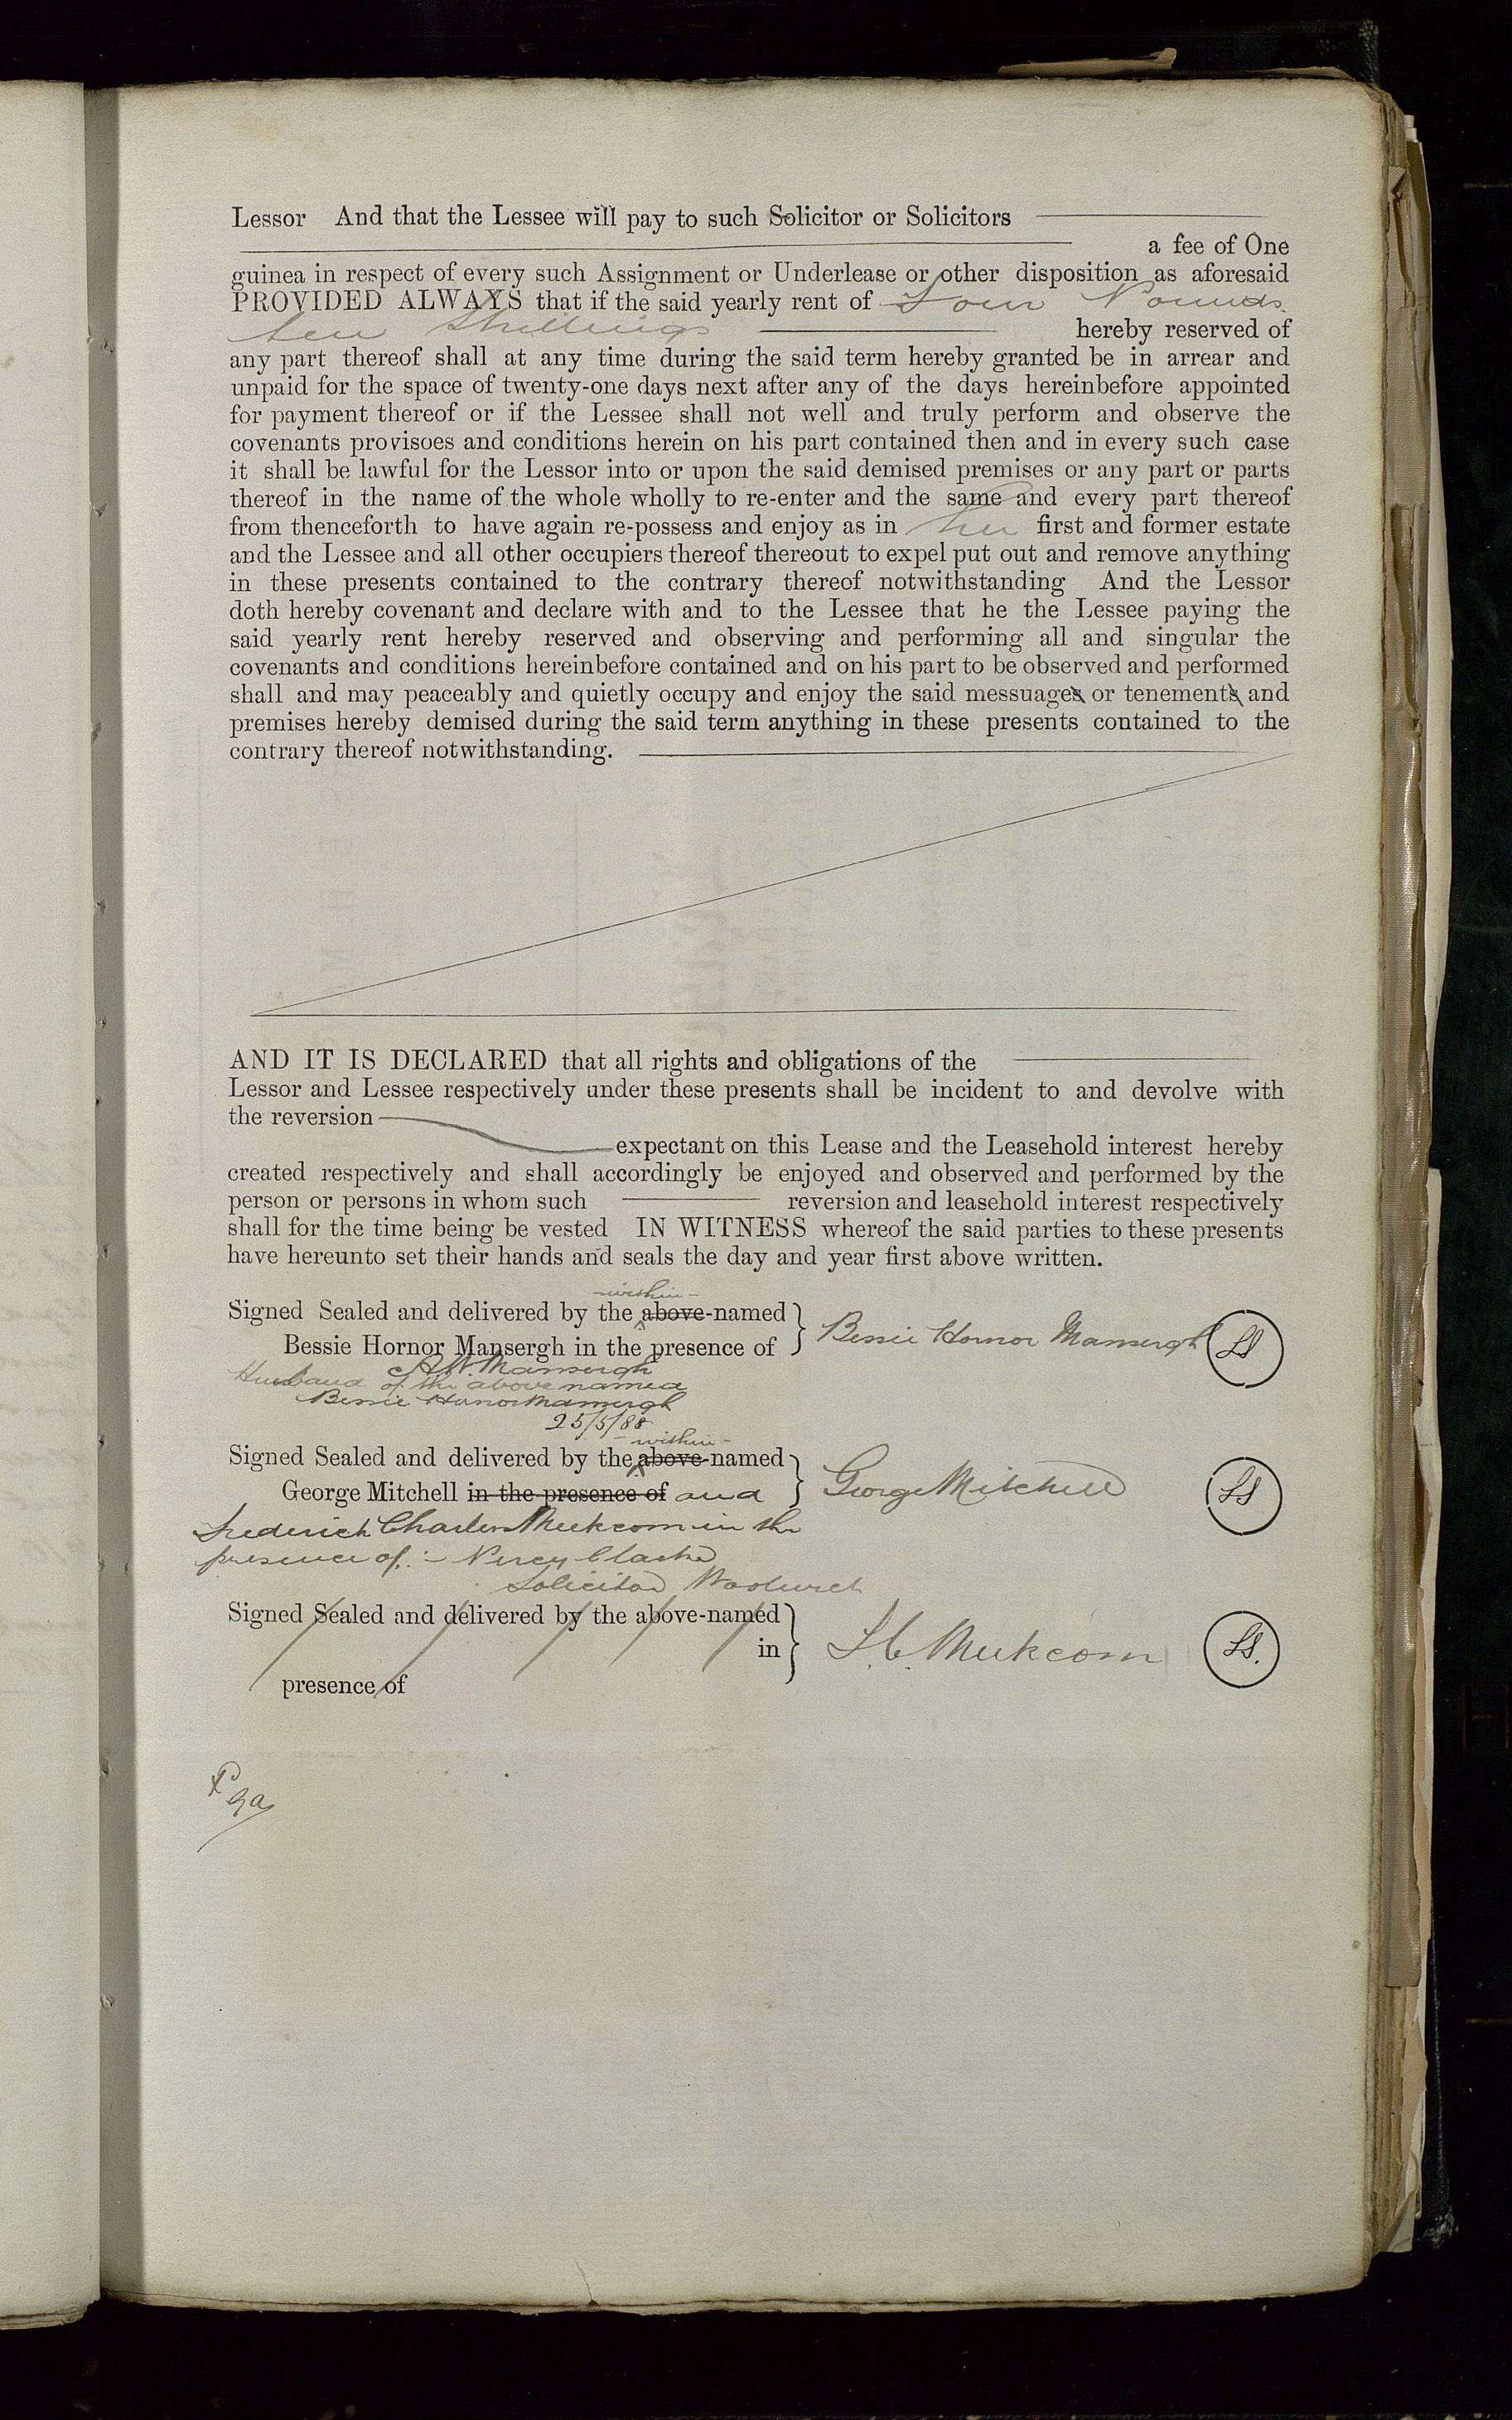 Lessor And that the Lessee will pay to such Solicitor or Solicitors
a fee of One
guinea in respect of every such Assignment or Underlease or other disposition as aforesaid
PROVIDED ALWAYS that if the said yearly rent of Four Pounds
ten Shillings hereby reserved of
any part thereof shall at any time during the said term hereby granted be in arrear and
unpaid for the space of twenty-one days next after any of the days hereinbefore appointed
for payment thereof or if the Lessee shall not well and truly perform and observe the
covenants provisoes and conditions herein on his part contained then and in every such case
it shall be lawful for the Lessor into or upon the said demised premises or any part or parts
thereof in the name of the whole wholly to re-enter and the same and every part thereof
from thenceforth to have again re-possess and enjoy as in her first and former estate
and the Lessee and all other occupiers thereof thereout to expel put out and remove anything
in these presents contained to the contrary thereof notwithstanding And the Lessor
doth hereby covenant and declare with and to the Lessee that he the Lessee paying the
said yearly rent hereby reserved and observing and performing all and singular the
covenants and conditions hereinbefore contained and on his part to be observed and performed
shall and may peaceably and quietly occupy and enjoy the said messuages or tenements and
premises hereby demised during the said term anything in these presents contained to the
contrary thereof notwithstanding.
AND IT IS DECLARED that all rights and obligations of the
Lessor and Lessee respectively under these presents shall be incident to and devolve with
the reversion
expectant on this Lease and the Leasehold interest hereby
created respectively and shall accordingly be enjoyed and observed and performed by the
person or persons in whom such reversion and leasehold interest respectively
shall for the time being be vested IN WITNESS whereof the said parties to these presents
have hereunto set their hands and seals the day and year first above written.
within
Signed Sealed and delivered by the above-named
Bessie Hornor Mansergh in the presence of
Bessie Hornor Mansergh LS
A W. Mansergh
Husband of the above named
Bessie Hornor Mansergh
25/5/88
within
Signed Sealed and delivered by the above-named
George Mitchell in the presence of and
George Mitchell LS
Frederick Charles Meekcom in the
presence of :- Percy Clarke
Solicitor Woolwich
Signed Sealed and delivered by the above-named
in
presence of
F. C. Meekcom LS.